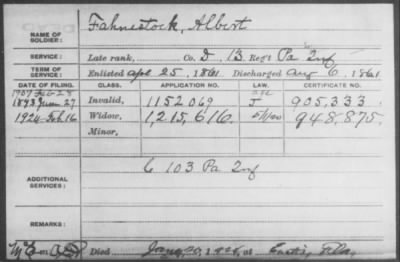 NAME OF SOLDIER: Fahnestock, Albert
SERVICE: Late rank, Co. D, 13 Reg't Pa Inf
TERM OF SERVICE: Enlisted Apr 25, 1861 Discharged Aug 6, 1861
DATE OF FILING. CLASS. APPLICATION NO. LAW. CERTIFICATE NO.
1907 Feb 28
1893 June 27 Invalid, 1152069 J 905,333
1924 Feb 16 Widow, 1,215,616 948,875
Minor,
ADDITIONAL SERVICES: C 103 Pa Inf
REMARKS:
Died Jany 20, 192 , at Eustis, Fla,